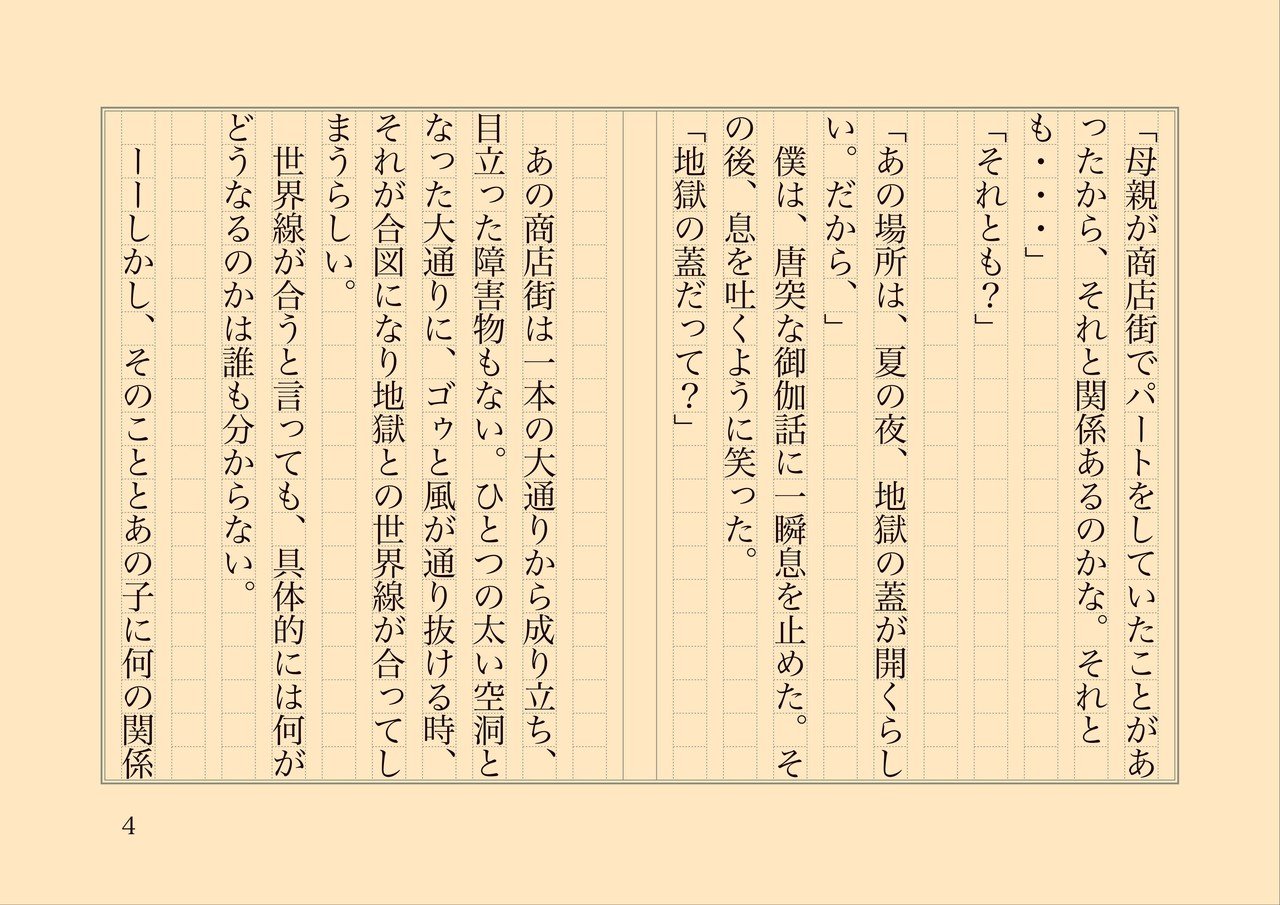 「母親が商店街でパートをしていたことがあ
ったから、それと関係あるのかな。それと
も・・・」
「それとも？」
「あの場所は、夏の夜、地獄の蓋が開くらし
い。だから、」
　僕は、唐突な御伽話に一瞬息を止めた。そ
の後、息を吐くように笑った。
「地獄の蓋だって？」
　あの商店街は一本の大通りから成り立ち、
目立った障害物もない。ひとつの太い空洞と
なった大通りに、ゴゥと風が通り抜ける時、
それが合図になり地獄との世界線が合ってし
まうらしい。
　世界線が合うと言っても、具体的には何が
どうなるのかは誰も分からない。
　ーーしかし、そのこととあの子に何の関係
4